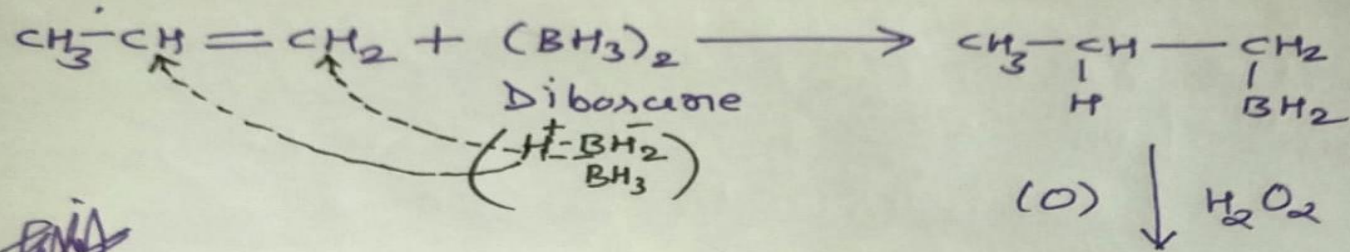 CH3-CH=CH2 + (BH3)2 ⟶ CH3-CH-CH2
H BH2
Diborane
(H+-BH2-
BH3)
(O) ↓ H2O2